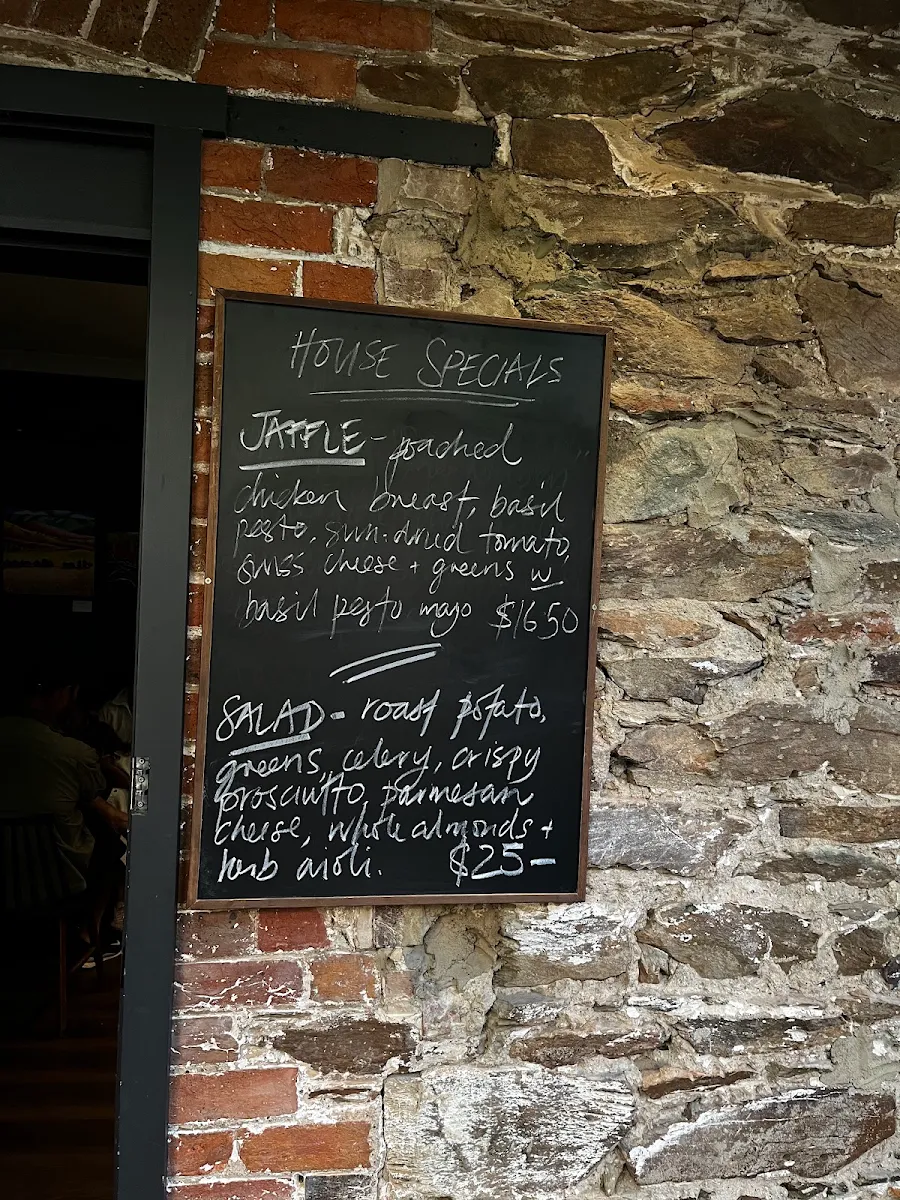 HOUSE SPECIALS
JAFFLE - poached
chicken breast, basil
pesto, sun-dried tomato,
swiss cheese + greens w
basil pesto mayo $16.50
SALAD - roast potato,
greens, celery, crispy
prosciutto, parmesan
cheese, whole almonds +
herb aioli. $25-